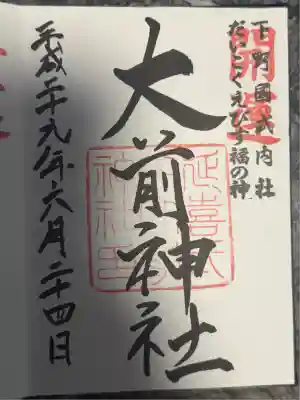 開運
下野國式内社
だいこくえびす福の神
大前神社
平成二十九年六月二十四日